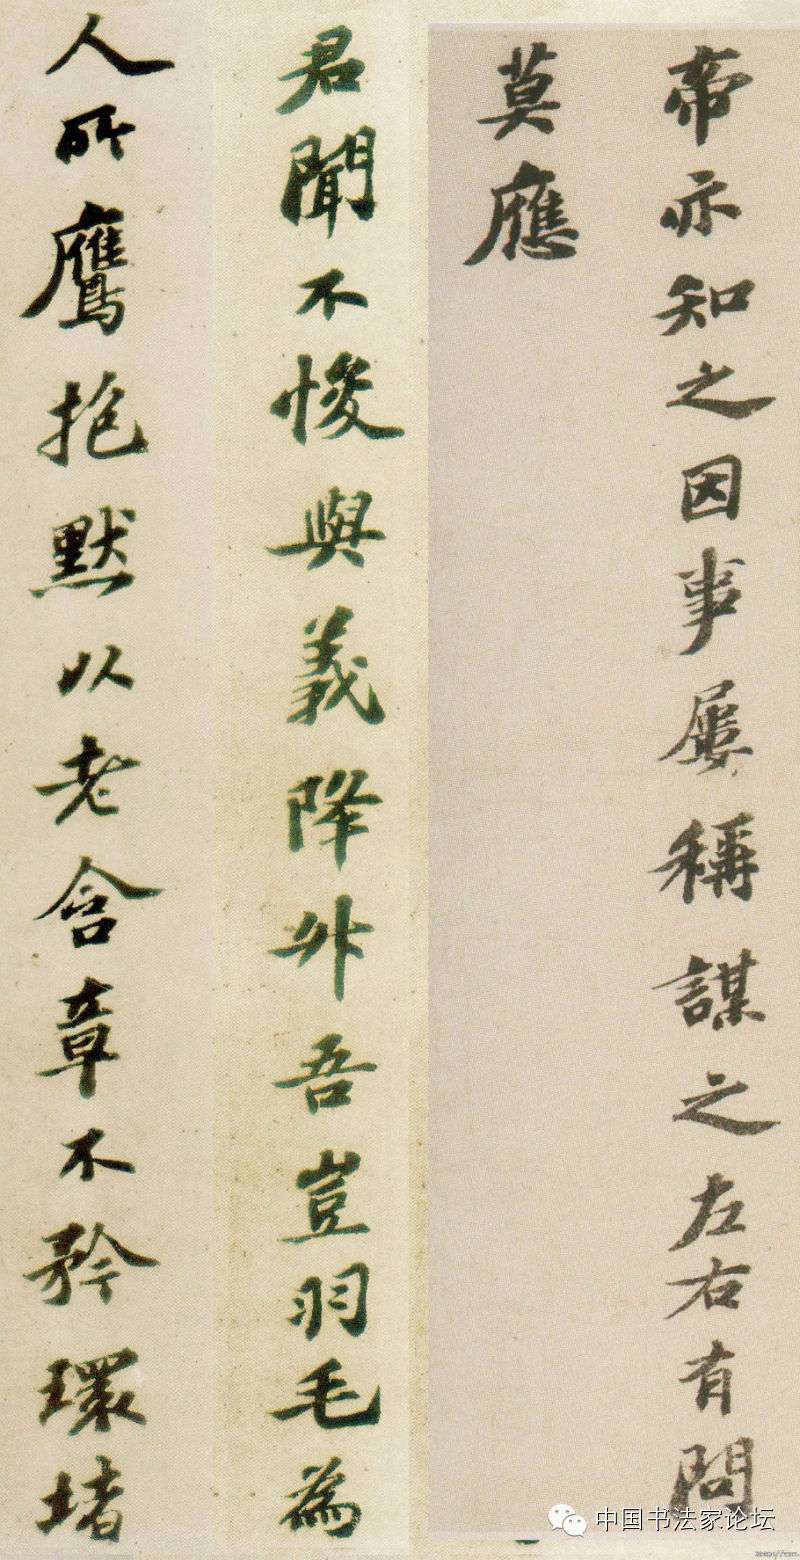 帝亦知之因事屡稱謀之左右有問
莫應
君聞不悛與義降外吾豈羽毛為
人所鷹抱默以老含章不矜環堵
中国书法家论坛